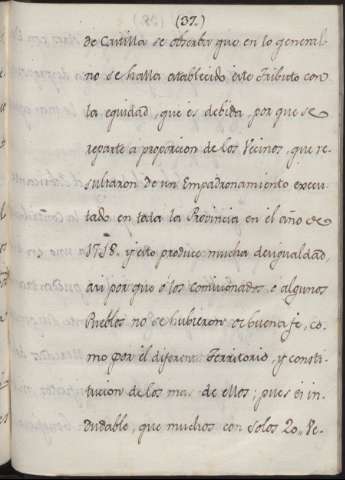 (37.)
de Castilla se observa que en lo general
no se halla establecido este Tributo con
la equidad, que es debida, por que se
reparte a proporcion de los Vecinos, que re-
sultaron de un Empadronamiento execu-
tado en toda la Provincia en el año de
1718. y esto produce mucha desigualdad,
asi por que ó los comisionados, ó algunos
Pueblos no se hubieron de buena fe, co-
mo por el diferente Territorio, y consti-
tucion de los mas de ellos; pues es in-
dudable, que muchos con solos 20„ Ve-